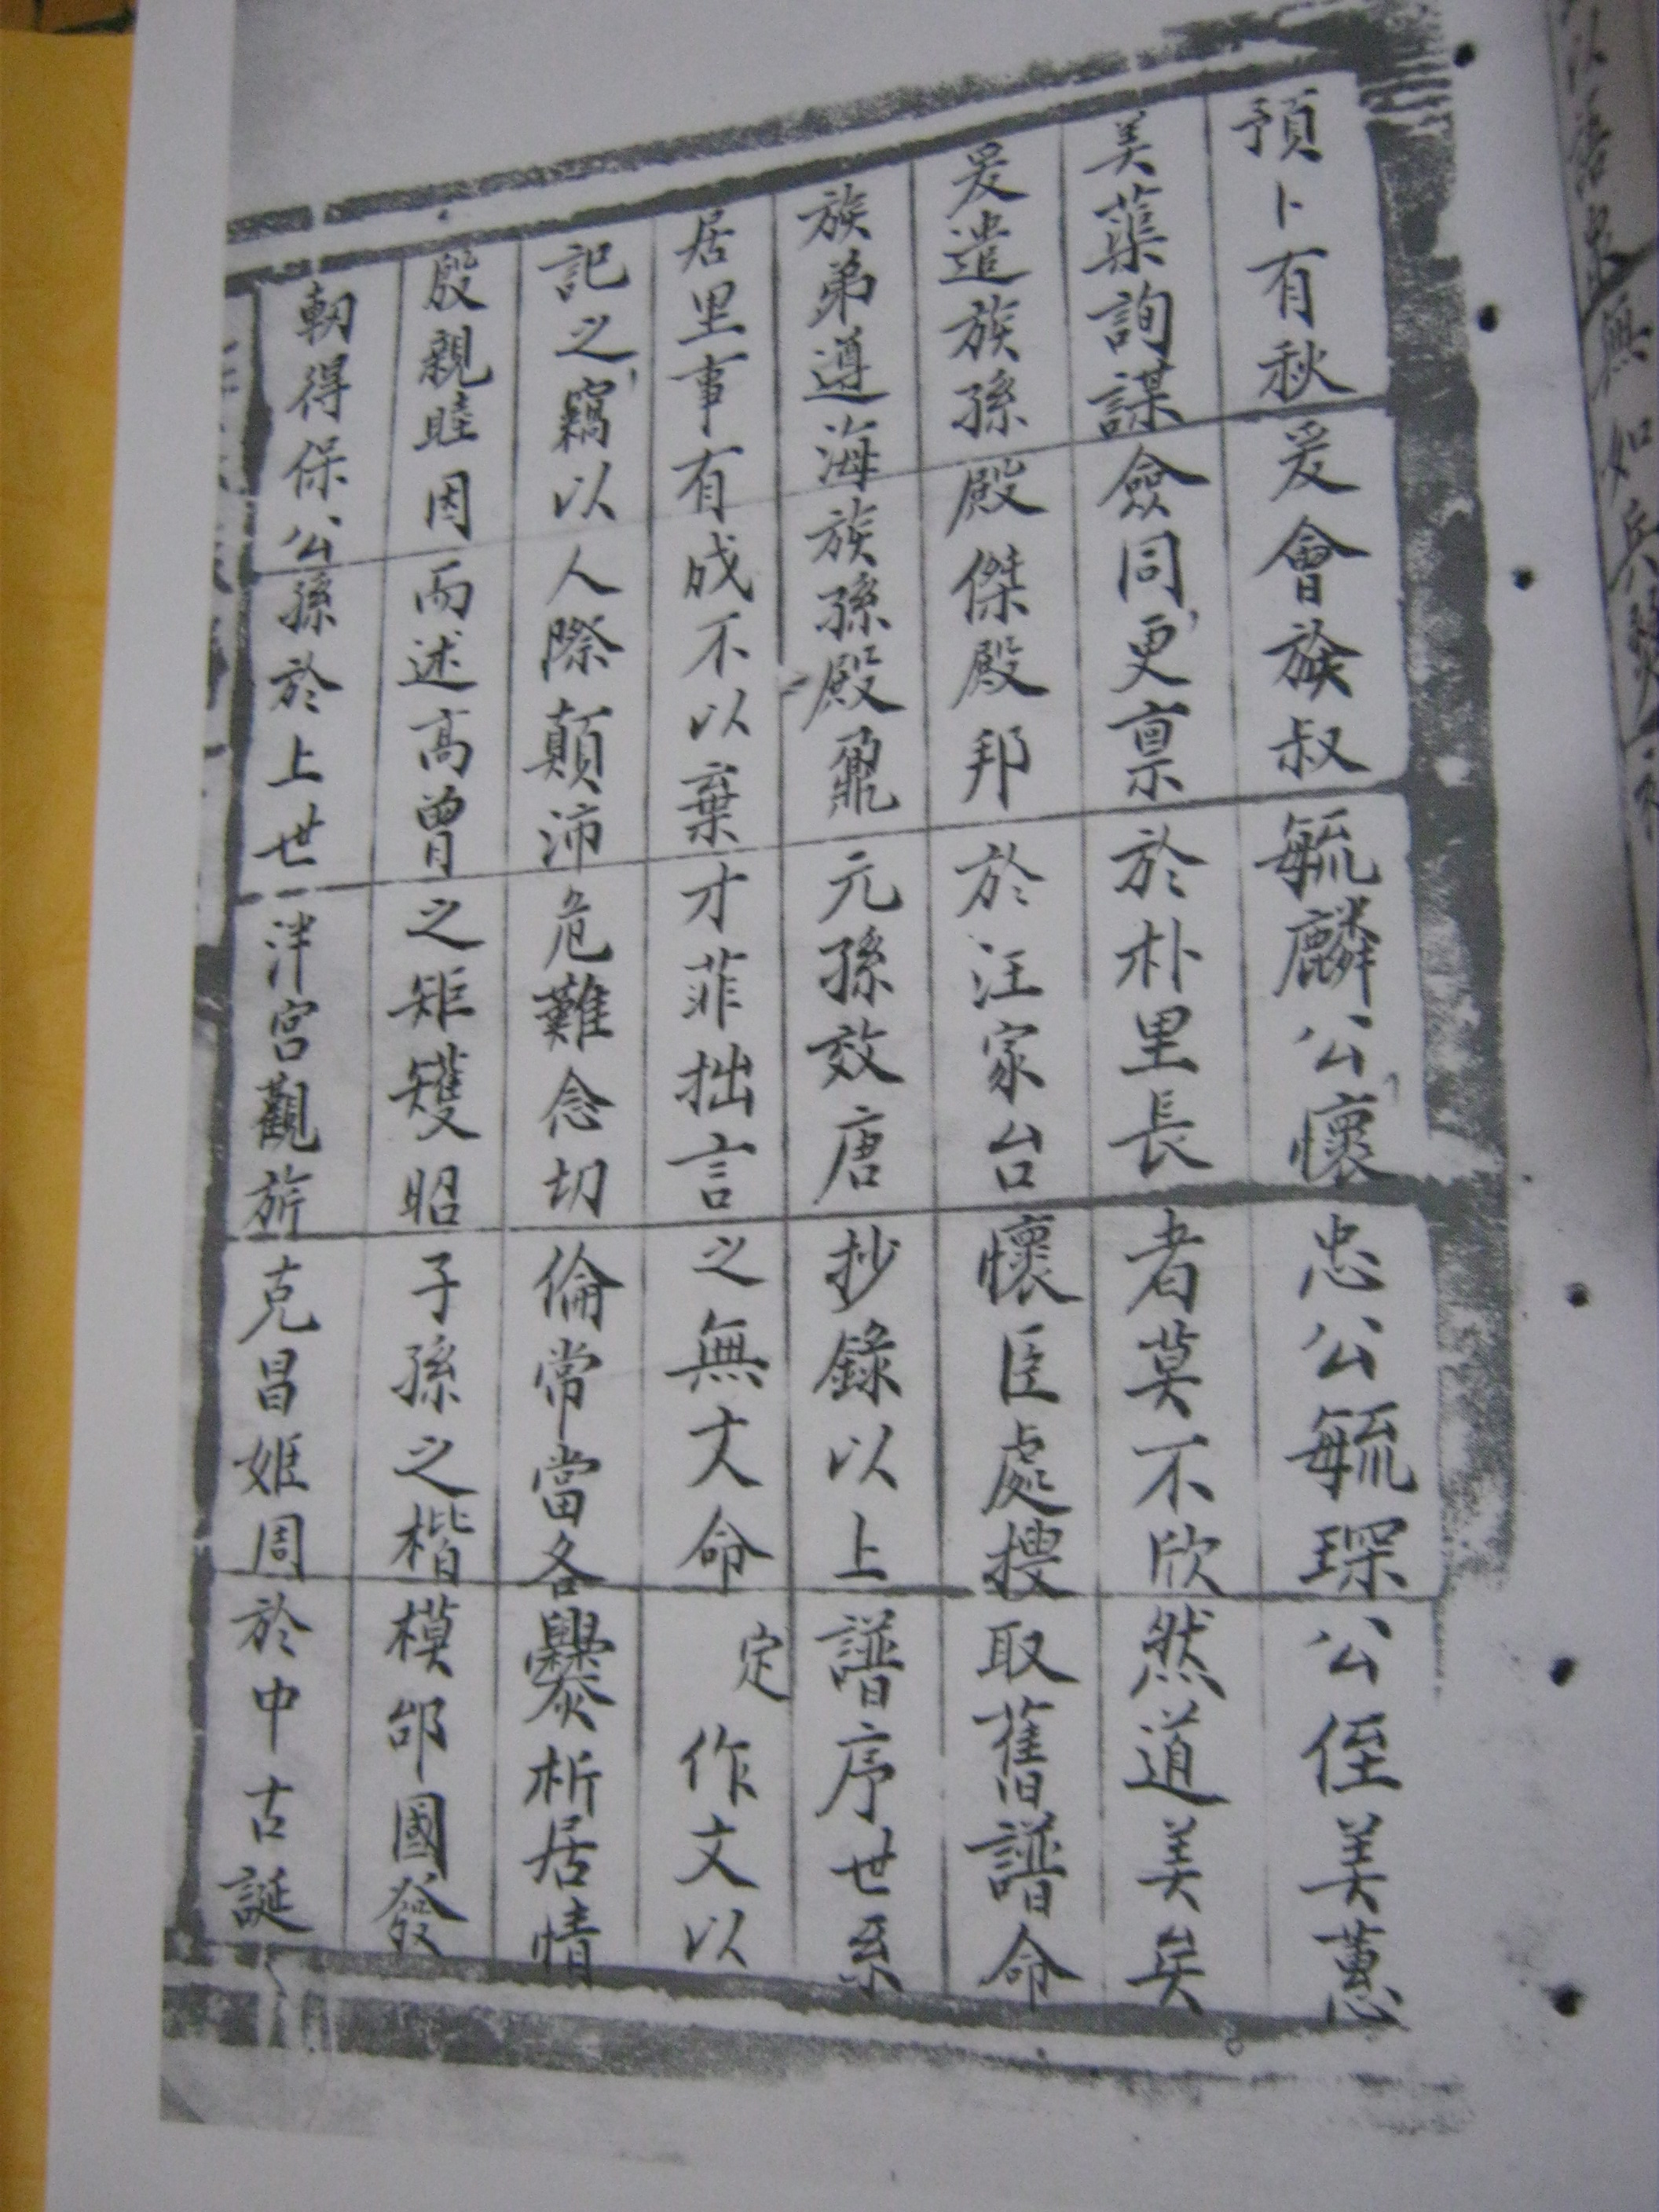 預卜有秋爰會族叔毓麟公懷忠公毓琛公侄美蕙
美蕖詢謀僉同更禀於朴里長者莫不欣然道美矣
爰遣族孫殿傑殿邦於汪家台懷臣處搜取舊譜命
族弟遵海族孫殿鼐元孫效唐抄錄以上譜序世系
居里事有成不以棄才菲拙言之無文命定作文以
記之竊以人際顛沛危難念切倫常當各爨析居情
殷親睦因而述高曾之矩矱昭子孫之楷模邰國發
軔得保公孫於上世泮宮觀旂克昌姬周於中古誕